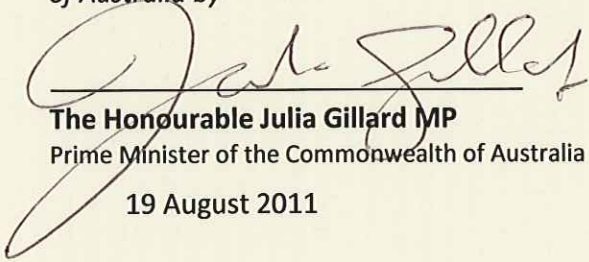 of Australia by
Julia Gillard
The Honourable Julia Gillard MP
Prime Minister of the Commonwealth of Australia
19 August 2011